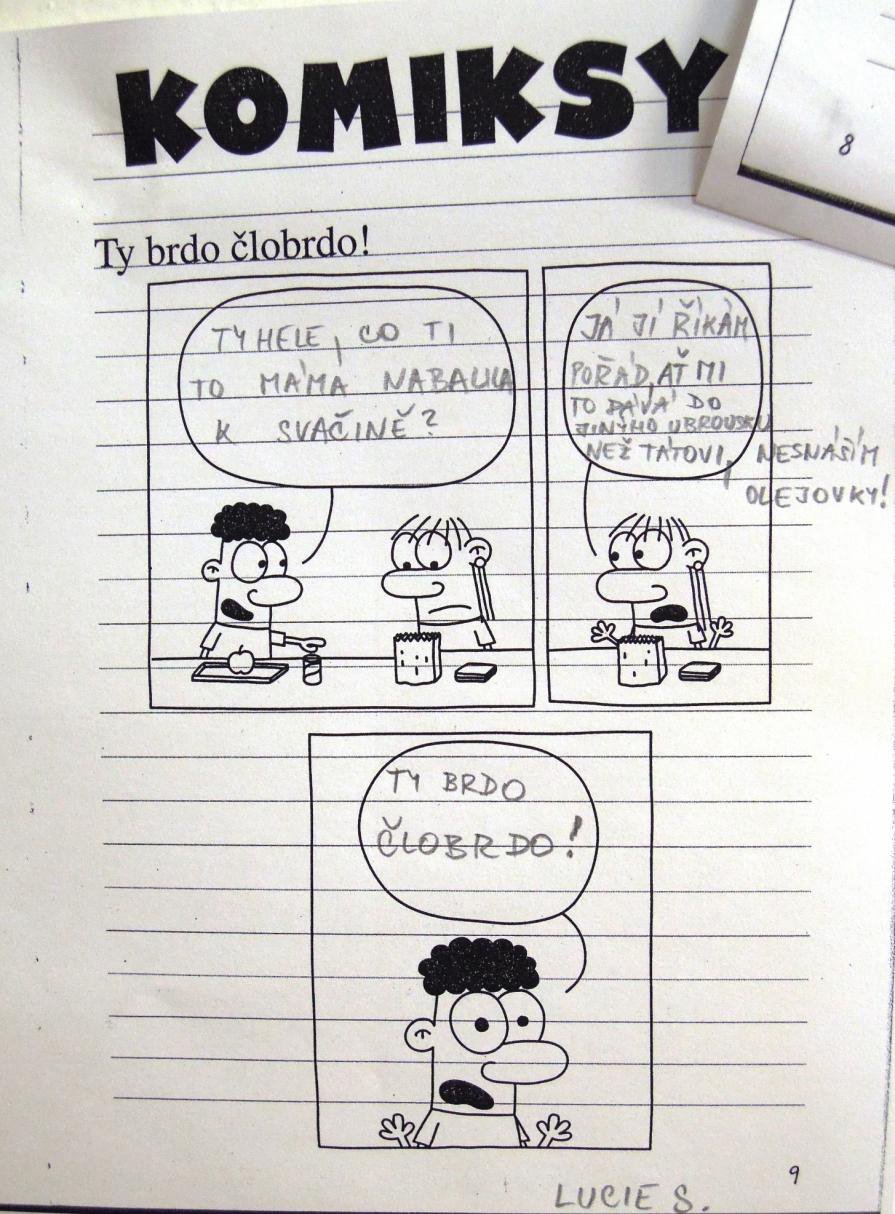 KOMIKSY
8
Ty brdo člobrdo!
TY HELE, CO TI
TO MÁMA NABALILA
K SVAČINĚ?
JÁ JÍ ŘÍKÁM
POŘÁD, AŤ MI
TO DÁVÁ DO
JINÝHO UBROUSKU
NEŽ TÁTOVI, NESNÁŠÍM
OLEJOVKY!
TY BRDO
ČLOBRDO!
9
LUCIE S.